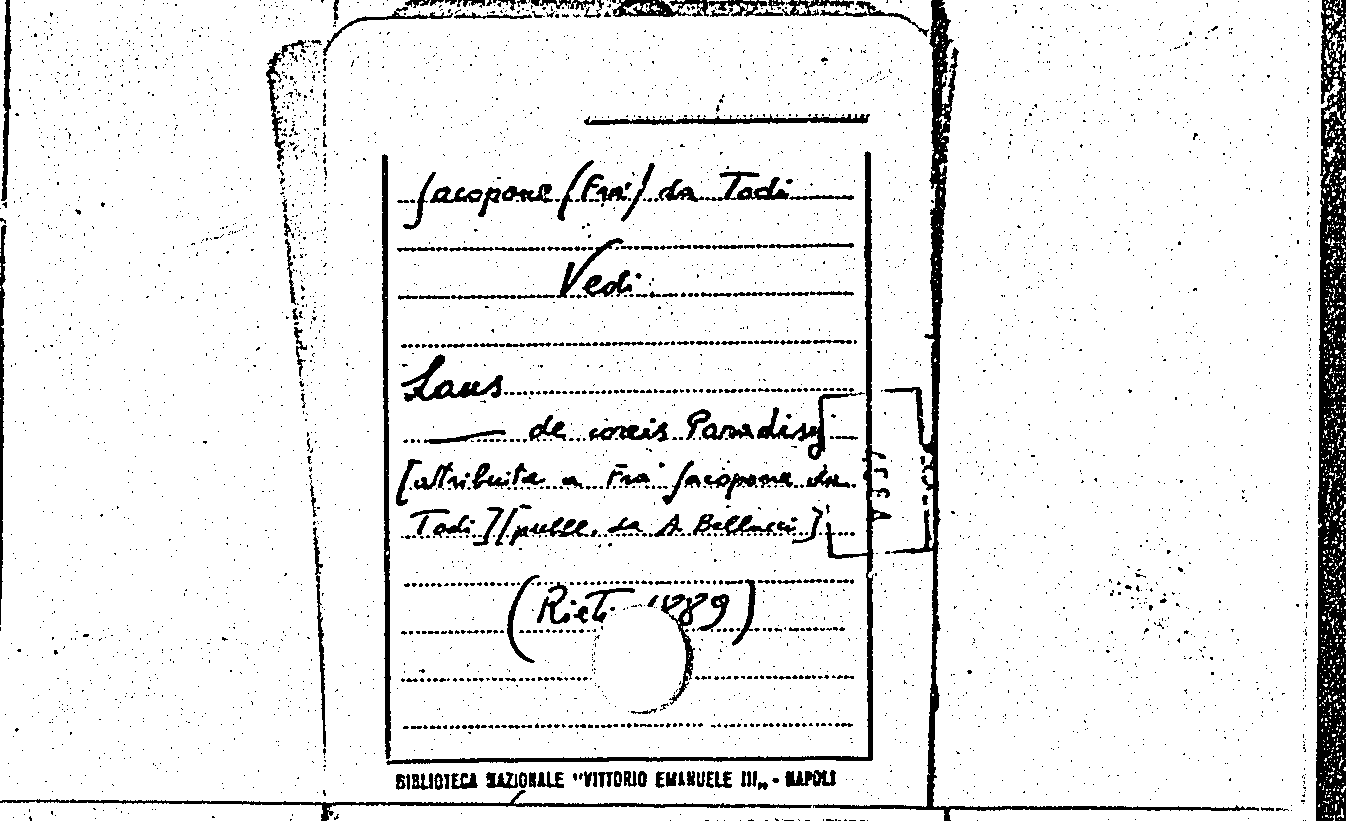 Jacopone (Fra') da Todi
Vedi
Laus
— de coreis Paradisy
[attribuita a Fra' Jacopone da
Todi] [pubbl. da A. Bellucci]
(Rieti 1889)
BIBLIOTECA NAZIONALE "VITTORIO EMANUELE III„ - NAPOLI